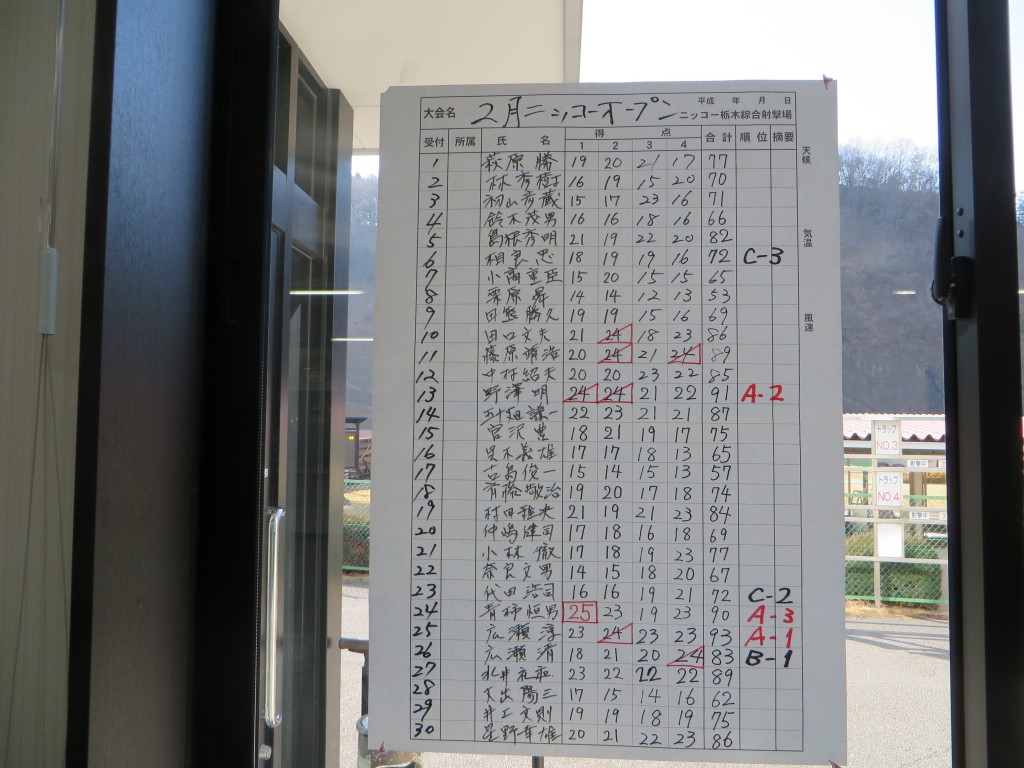 大会名 2月ニッコーオープン 平成 年 月 日
ニッコー栃木綜合射撃場
受付 所属 氏名 得点 合計 順位 摘要
1 2 3 4
1 萩原 勝 19 20 21 17 77
2 林 秀樹 16 19 15 20 70
3 羽山彦蔵 15 17 23 16 71
4 鈴木茂男 16 16 18 16 66
5 島根秀明 21 19 22 20 82
6 相良 忠 18 19 19 16 72 C-3
7 小高重臣 15 20 15 15 65
8 栗原 昇 14 14 12 13 53
9 田熊勝久 19 19 15 16 69
10 田口文夫 21 24 18 23 86
11 篠原靖浩 20 24 21 24 89
12 中村紹夫 20 20 23 22 85
13 野澤 明 24 24 21 22 91 A-2
14 五十畑謙一 22 23 21 21 87
15 宮沢 豊 18 21 19 17 75
16 英雄 17 17 18 13 65
17 古島俊一 15 14 15 13 57
18 斉藤敏治 19 20 17 18 74
19 村田雅夫 21 19 21 23 84
20 仲嶋建司 17 18 16 18 69
21 小林 徹 17 18 19 23 77
22 奈良文男 14 15 18 20 67
23 代田浩司 16 16 19 21 72 C-2
24 青柿恒男 25 23 19 23 90 A-3
25 広瀬 淳 23 24 23 23 93 A-1
26 広瀬 清 18 21 20 24 83 B-1
27 23 22 22 22 89
28 大出陽三 17 15 14 16 62
29 井工文則 19 19 18 19 75
30 星野年雄 20 21 22 23 86
天候
気温
風速
トラップ
NO.3
射撃中
トラップ
NO.4
射撃中